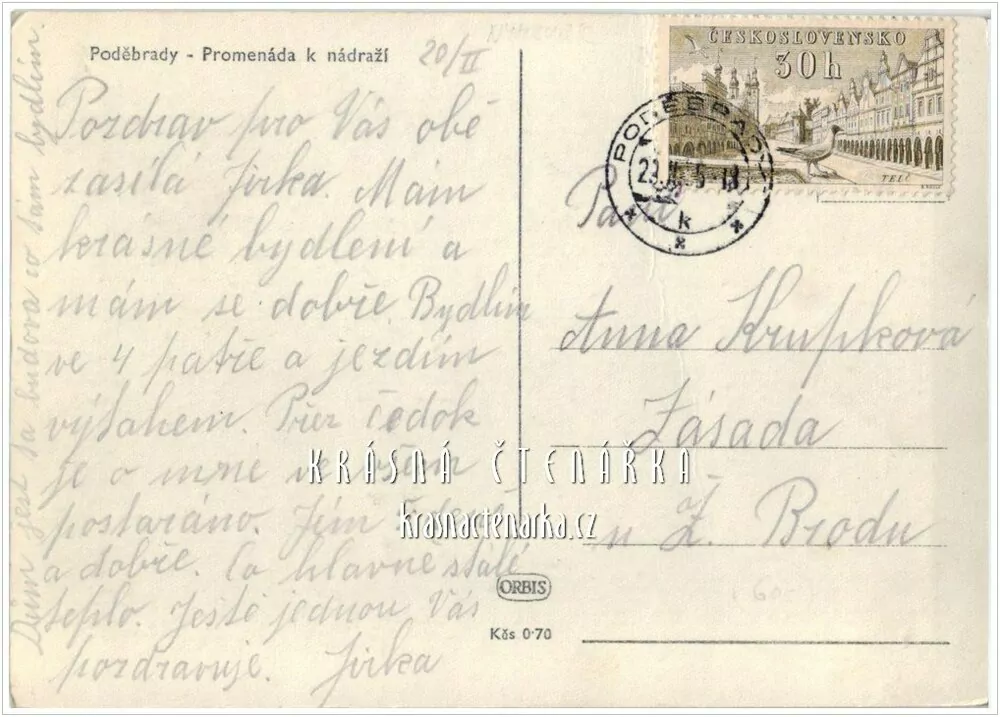 Poděbrady - Promenáda k nádraží
20/II
Pozdrav pro Vás obě
zasílá Jirka. Mám
krásné bydlení a
mám se dobře. Bydlím
ve 4 patře a jezdím
výtahem. Přez čedok
je o mne ve všem
postaráno. Jím
a dobře. Co hlavně stálé
teplo. Ještě jednou Vás
pozdravuje. Jirka
Dům jest za budova co sám bydlím.
ČESKOSLOVENSKO
30 h
TELČ
PODĚBRADY
k
Paní
Anna Krupková
Zásada
u Ž. Brodu
KRÁSNÁ ČTENÁŘKA
krasnactenarka.cz
ORBIS
Kčs 0·70
60-